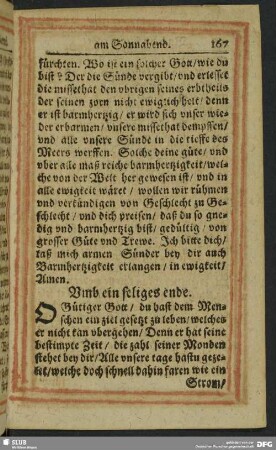 am Sonnabend. 167
fürchten. Wo ist ein solcher Gott/ wie du
bist? Der die Sünde vergibt/ vnd erlesset
die missethat den vbrigen seines erbtheils
der seinen zorn nicht ewiglich helt/ denn
er ist barmhertzig/ er wird sich vnser wie-
der erbarmen/ vnsere missethat dempffen/
vnd alle vnsere Sünde in die tieffe des
Meers werffen. Solche deine güte/ vnd
vber alle maß reiche barmhertzigkeit/ wel-
che von der Welt her gewesen ist/ vnd in
alle ewigkeit wäret/ wollen wir rühmen
vnd verkündigen von Geschlecht zu Ge-
schlecht/ vnd dich preisen/ daß du so gne-
dig vnd barmhertzig bist/ gedültig/ von
grosser Güte vnd Trewe. Ich bitte dich/
laß mich armen Sünder bey dir auch
Barmhertzigkeit erlangen/ in ewigkeit/
Amen.
Vmb ein seliges ende.
O Gütiger Gott/ du hast dem Men-
schen ein ziel gesetzt zu leben/ welches
er nicht kan vbergehen/ Denn er hat seine
bestimpte Zeit/ die zahl seiner Monden
stehet bey dir/ Alle vnsere tage hastu geze-
let/ welche doch schnell dahin faren wie ein
Strom/
SLUB
DFG